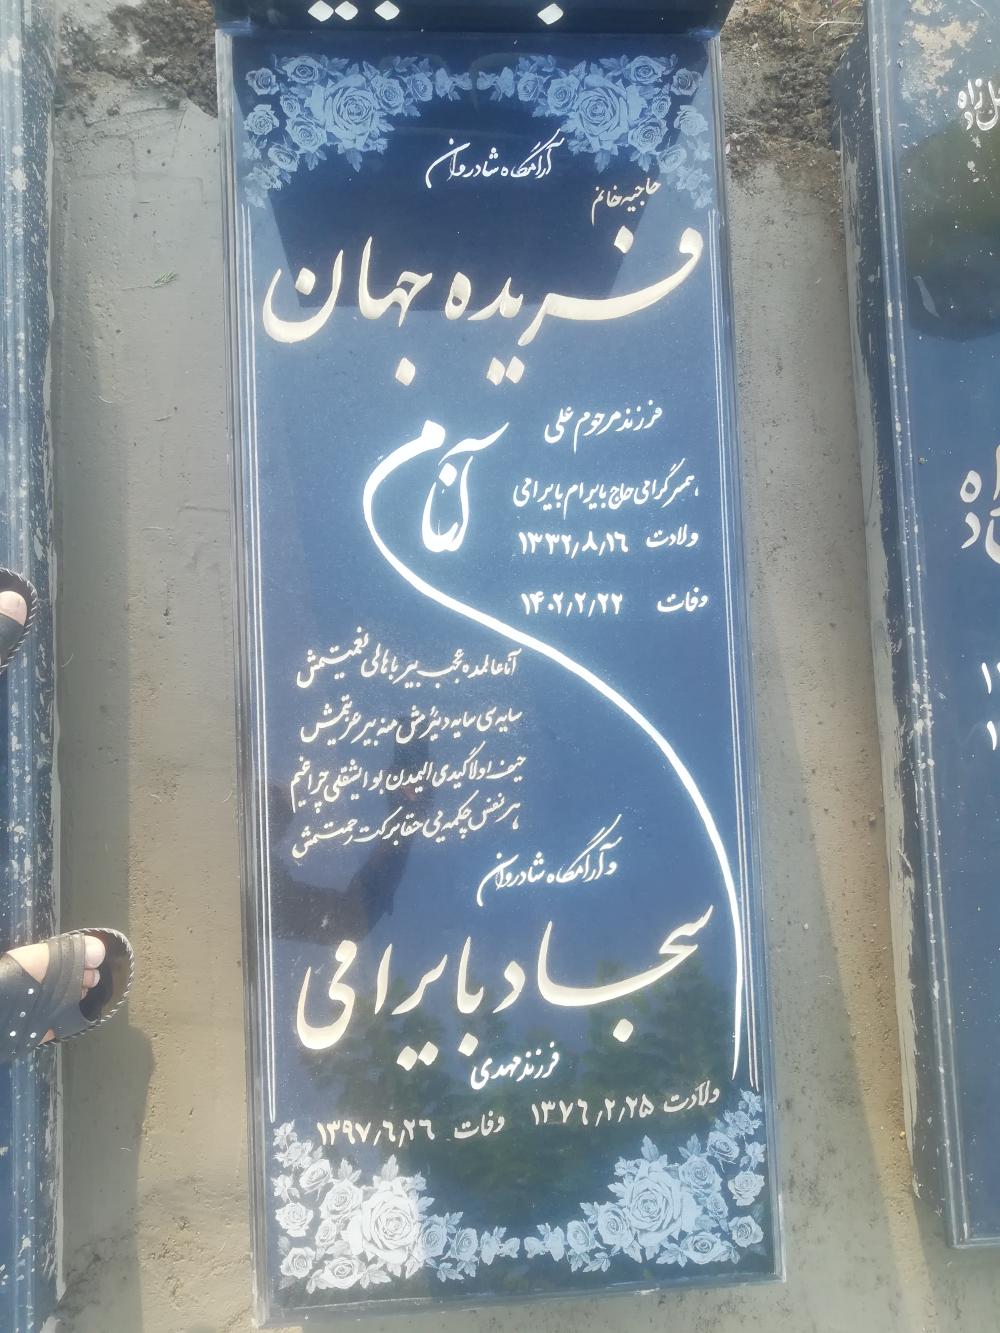 آرامگاه شادروان
حاجیه خانم
فریده جهان
آنام
فرزند مرحوم علی
همسر گرامی حاج بایرام بایرامی
ولادت ۱۳۳۲٫۸٫۱۶
وفات ۱۴۰۲٫۲٫۲۲
آنا عالمده عجب بیر باهالی نعمیتمش
سایه سی سایه دئیرمش منه بیر عزتیمش
حیف اولا گیدی الیمدن بو ایشقلی چراغیم
هر نفس چکمه می حقا برکت رحمتمش
و آرامگاه شادروان
سجاد بایرامی
فرزند مهدی
ولادت ۱۳۷۶٫۲٫۲۵ وفات ۱۳۹۷٫۶٫۲۶